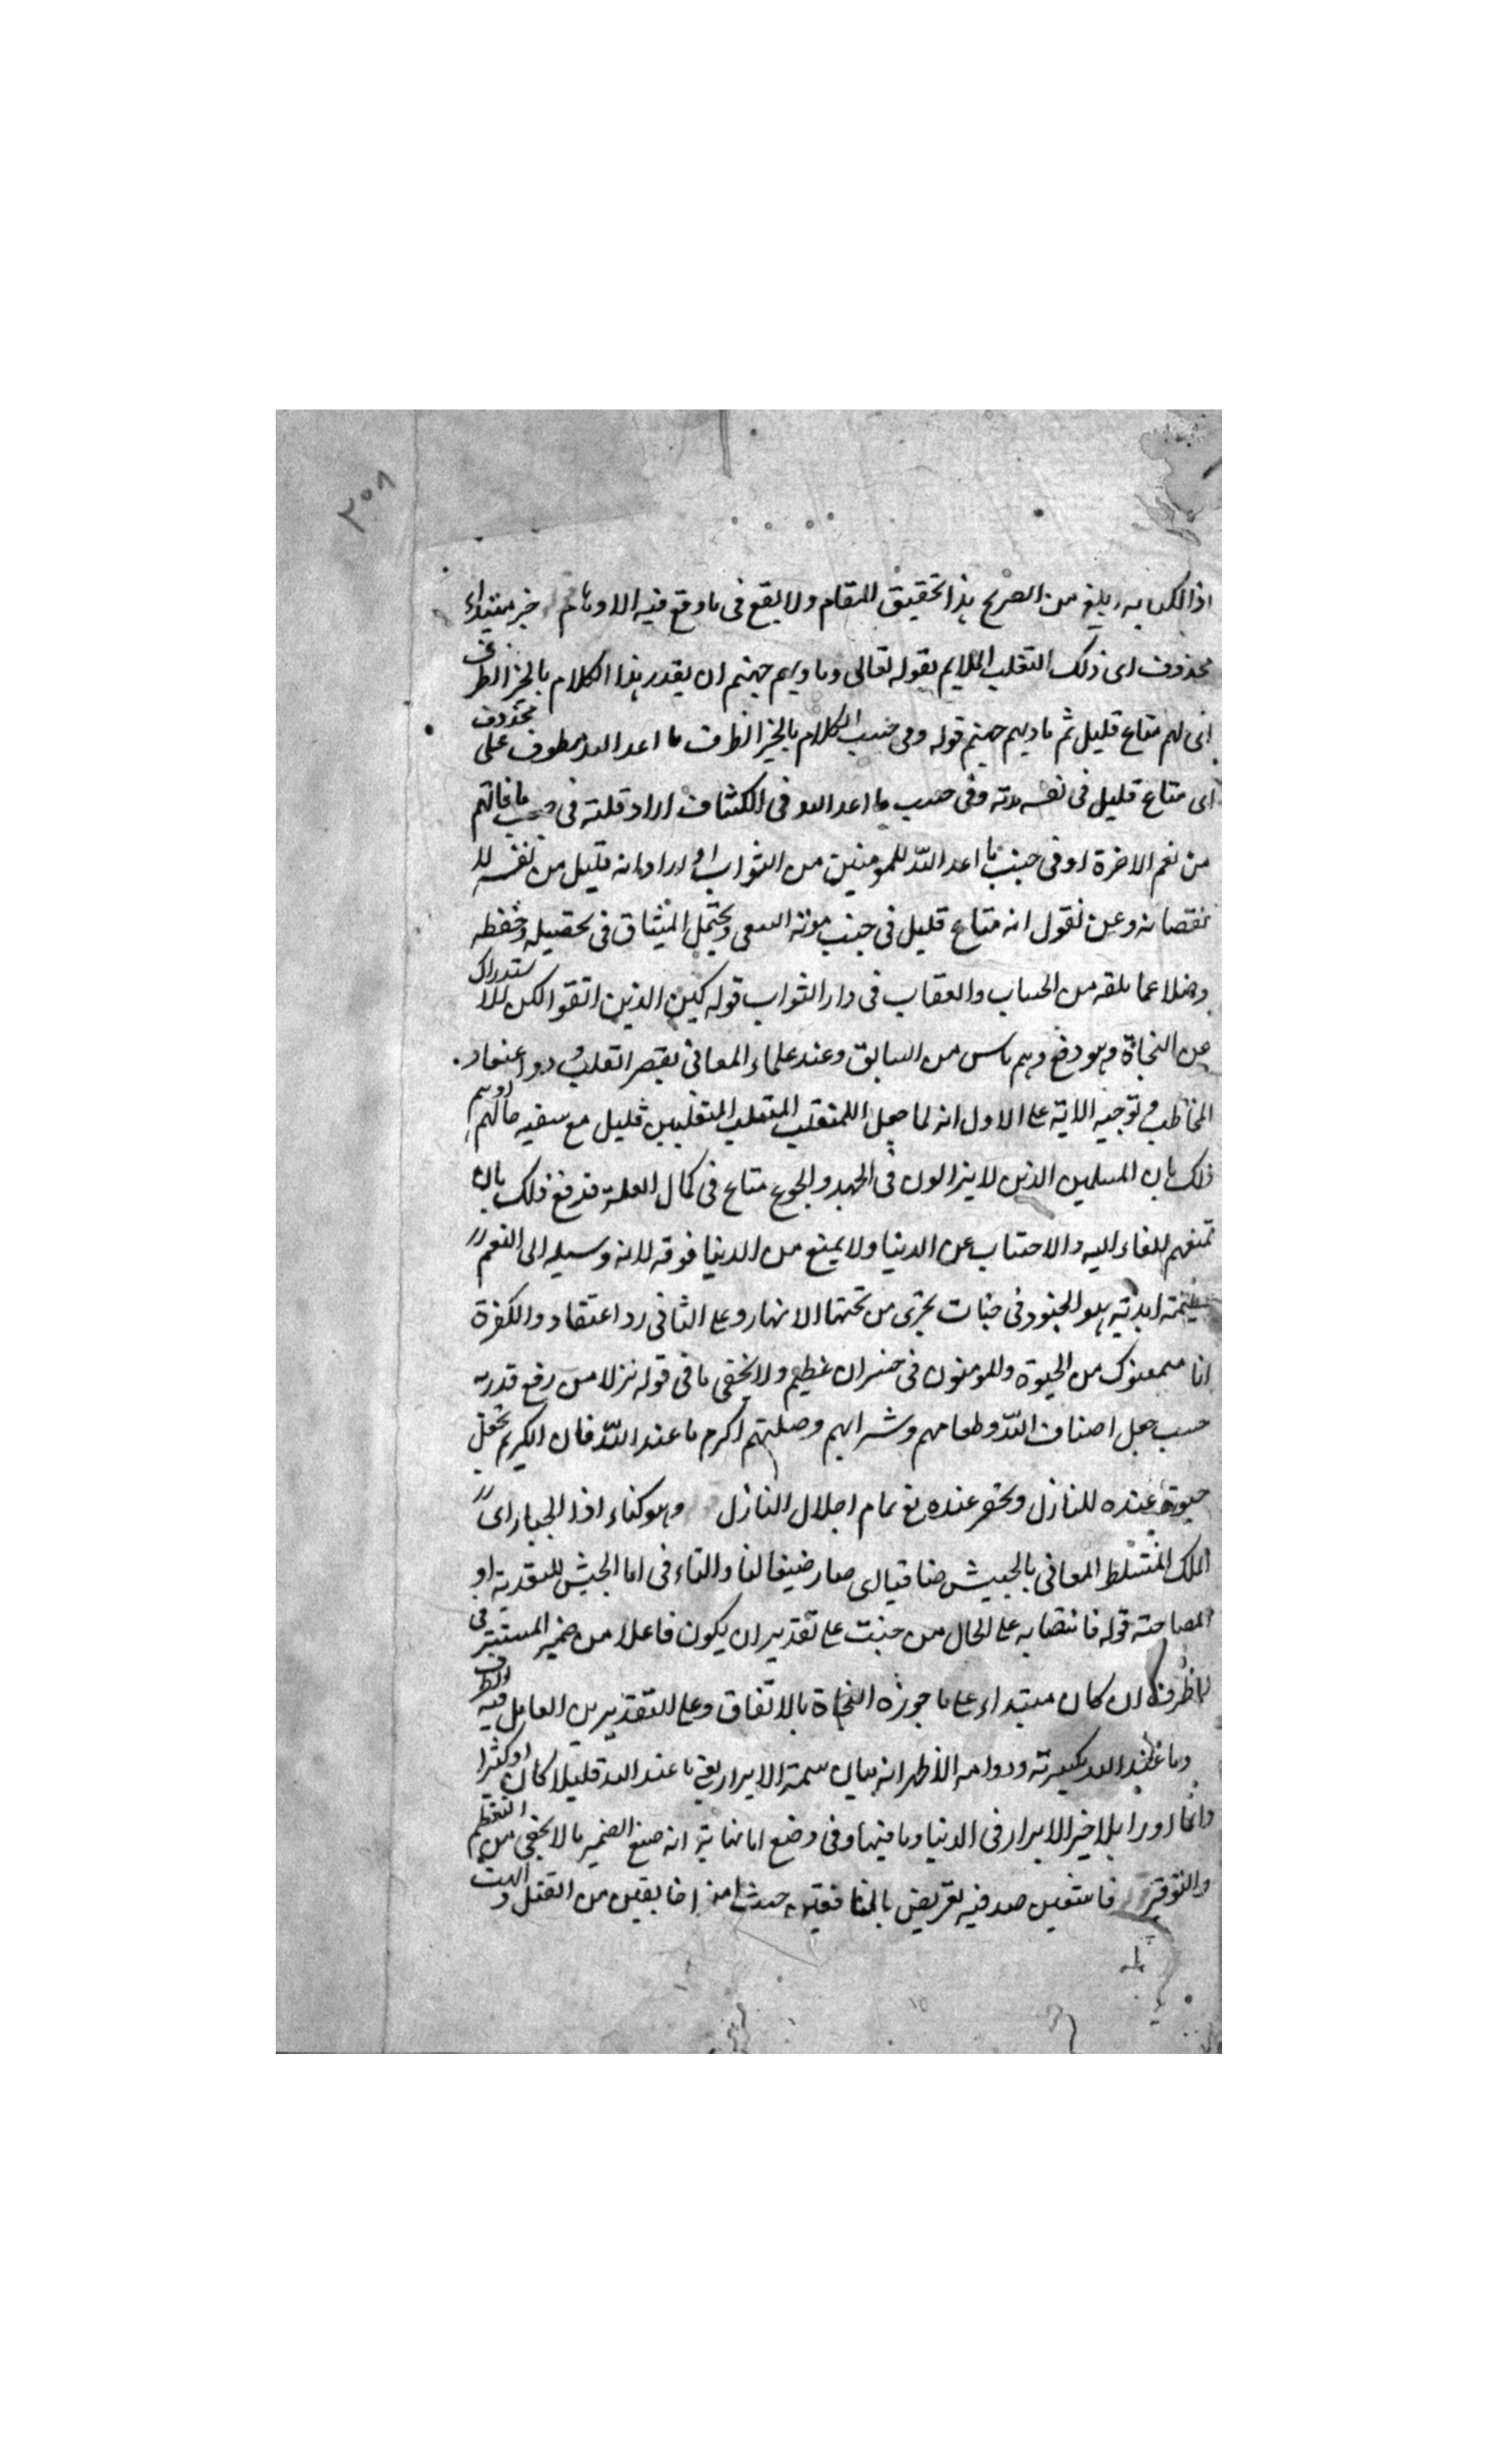 ٣٥٨
اذ الكنايه ابلغ من الصريح هذا تحقيق المقام ولا يقع فى ما وقع فيه الاوهام خبر مبتداء
محذوف اى ذلك التقلب الملايم بقوله تعالى وماويهم جهنم ان يقدر هذا الكلام بالخبر الظرف
اى لهم متاع قليل ثم ماويهم جهنم قوله وفى جنب الكلام بالخبر الظرف ما اعد الله معطوف على محذوف
اى متاع قليل فى نفسه مدته وفى جنب ما اعد الله فى الكشاف اراد قلته فى جنب ما فاتهم
من نعم الاخرة او فى جنب ما اعد اللّه للمومنين من الثواب او اراد انه قليل من نفسه لـ
نقصانه وعن نقول انه متاع قليل فى جنب مونة السعى وتحمل المشاق فى تحصيله وحفظه
وفضلا عما يلقه من الحساب والعقاب فى دار الثواب قوله لكن الذين اتقوا لكن للاستدراك
عن النحاة وهو دفع وهم ناس من السابق وعند علماء المعانى يقصر القلب ورد اعتقاد
المخاطب فى توجيه الاية على الاول انه لما جعل المتقلب المتقلبين قليل مع
ذلك بان المسلمين الذين لا يزالون فى الجهد والجوع متاع فى كمال القلة فدفع ذلك بان
تمتعهم للقاء اليه والاجتناب عن الدنيا ولا يمتع من الدنيا فوقه لانه وسيله الى النعم
عظيمة ابدية هو الخلود فى جنات تجرى من تحتها الانهار وعلى الثانى رد اعتقاد والكفرة
انا متمتعون من الحيوة والمومنون فى خسران عظيم ولا يخفى ما فى قوله نزلا من رفع قدره
حسب جعل اصناف اللّه وطعامهم وشرابهم وصلتهم اكرم ما عند اللّه فان الكريم يجعل
عنده للنازل ويحضر عنده تمام اجلال النازل وهو كناء اذا الجبار اى
الملك المتسلط المعافى بالجيش ضافنا اى صار ضيفا لنا والتاء فى اما الجيش للتعدية او
المصاحبة قوله فانتصابه على الحال من جنت على تقدير ان يكون فاعلا من ضمير المستتر فى
الظرف ان كان مبتداء على ما جوزه النحاة بالاتفاق وعلى التقديرين العامل فيه الظرف
وما عند الله لكثرته ودوامه الاظهر انه بيان سمة الابرار يعنى ما عند الله قليلا كان او كثيرا
دائما اورا بلا خير الابرار فى الدنيا وما فيها وفى وضع انه صنع الضمير ما لا يخفى من التعظيم
والتوقير فاستعين فيه تعريض بالمنافقين حيث من القتل و